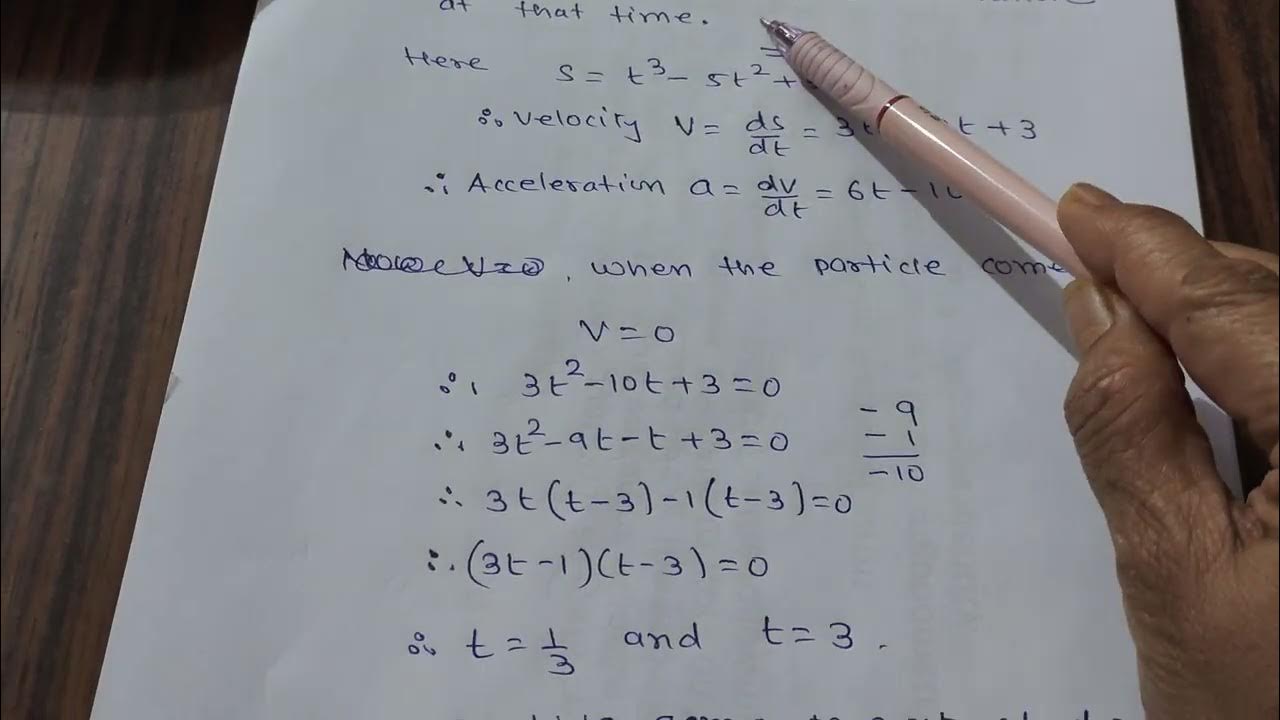 at that time.
Here S = t³ - 5t² +
∴ Velocity V = ds/dt = 3t t + 3
∴ Acceleration a = dv/dt = 6t - 1
, when the particle come
V = 0
∴ 3t² - 10t + 3 = 0
- 9
∴ 3t² - 9t - t + 3 = 0
- 1
- 10
∴ 3t(t-3) - 1(t-3) = 0
∴ (3t-1)(t-3) = 0
∴ t = 1/3 and t = 3.